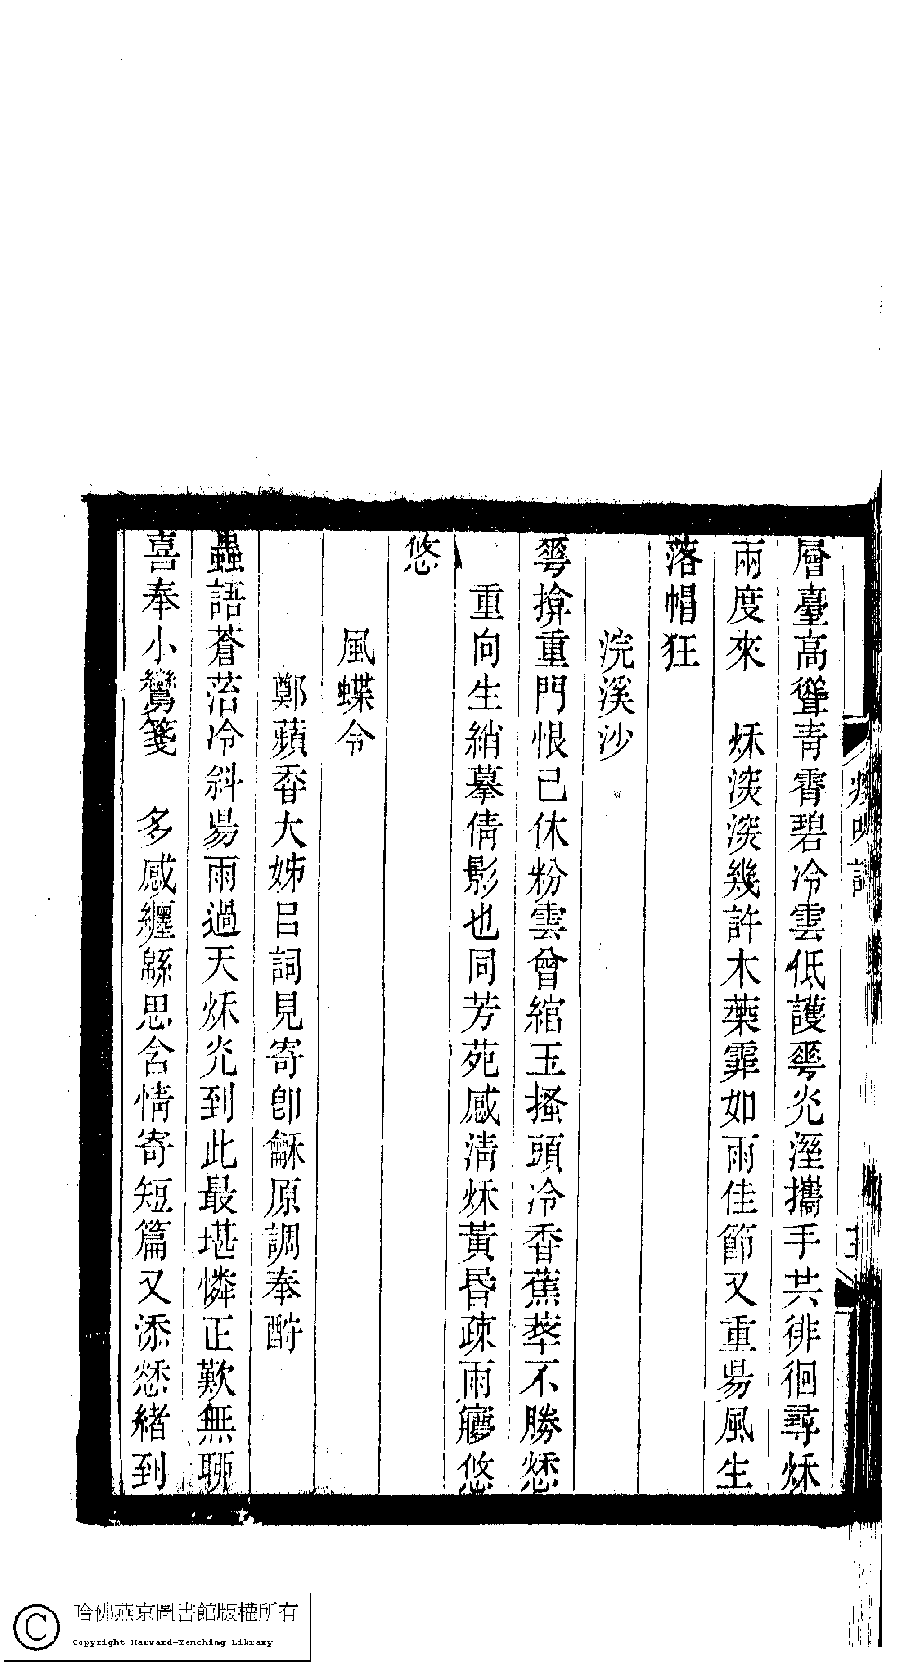 層臺高聳青霄碧冷雲低護蕚灮溼攜手共徘徊尋秌
兩度來　秌淡淡幾許木藥霏如雨佳節又重昜風生
落帽狂
浣溪沙
蕚揜重門恨已休粉雲曾綰玉搔頭冷香蕉萃不勝愁
重向生綃摹倩影也同芳苑感淸秌黃昏疎雨廫悠
悠
風蝶令
鄭蘋香大姊㠯詞見寄卽龢原調奉酧
蟲語蒼苔冷斜昜雨過天秌灮到此最堪憐正歎無聊
喜奉小鸞箋　多感纏緜思含情寄短篇又添愁緒到
哈佛燕京圖書館版權所有
Copyright Harvard-Yenching Library